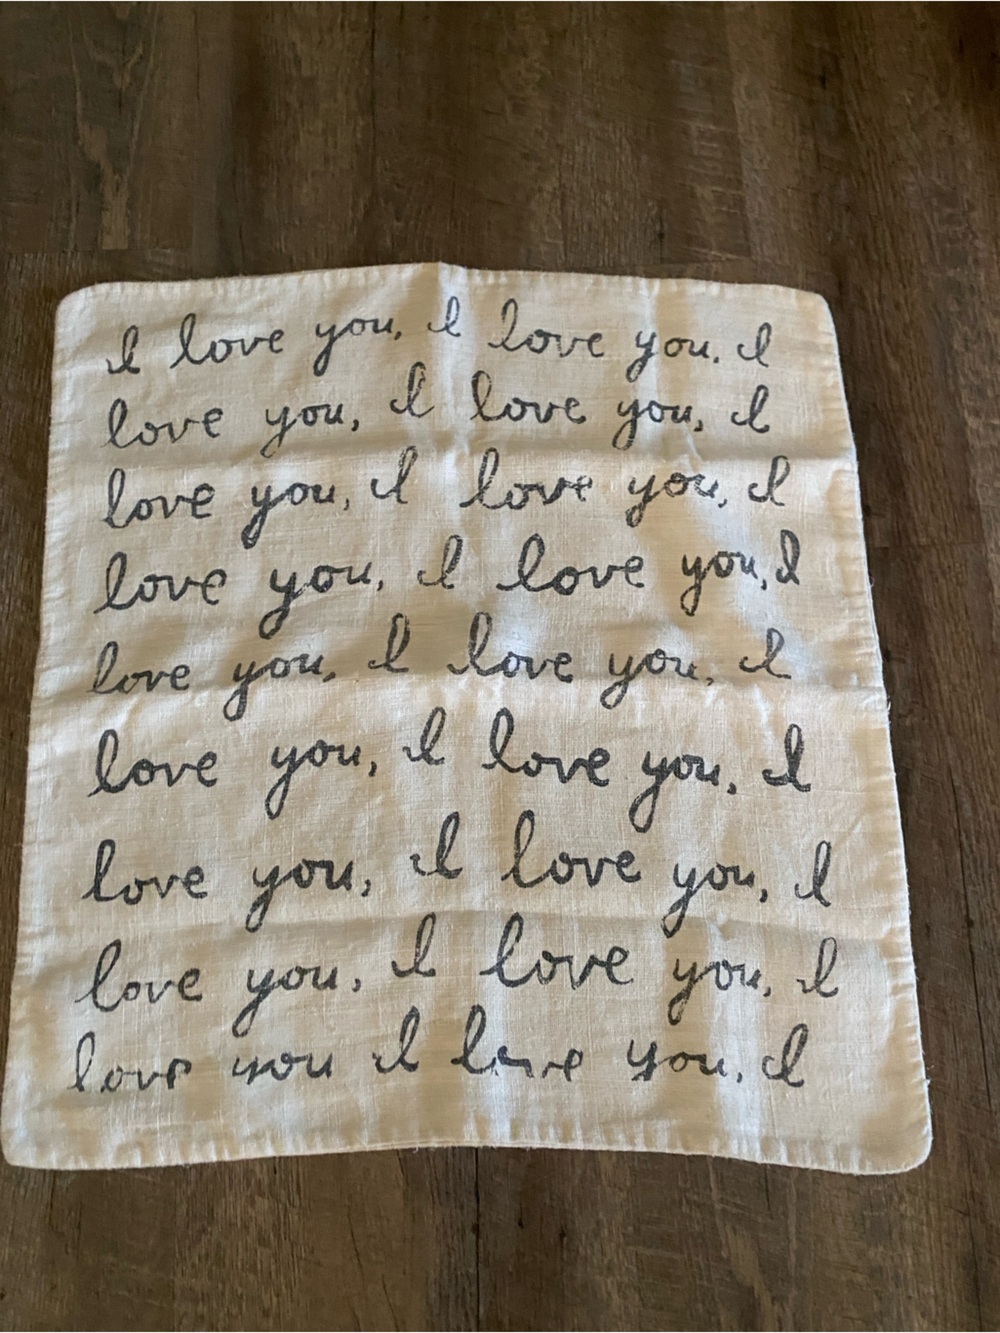 I love you, I love you, I
love you, I love you, I
love you, I love you, I
love you, I love you, I
love you, I love you, I
love you, I love you, I
love you, I love you, I
love you, I love you, I
love you I love you, I